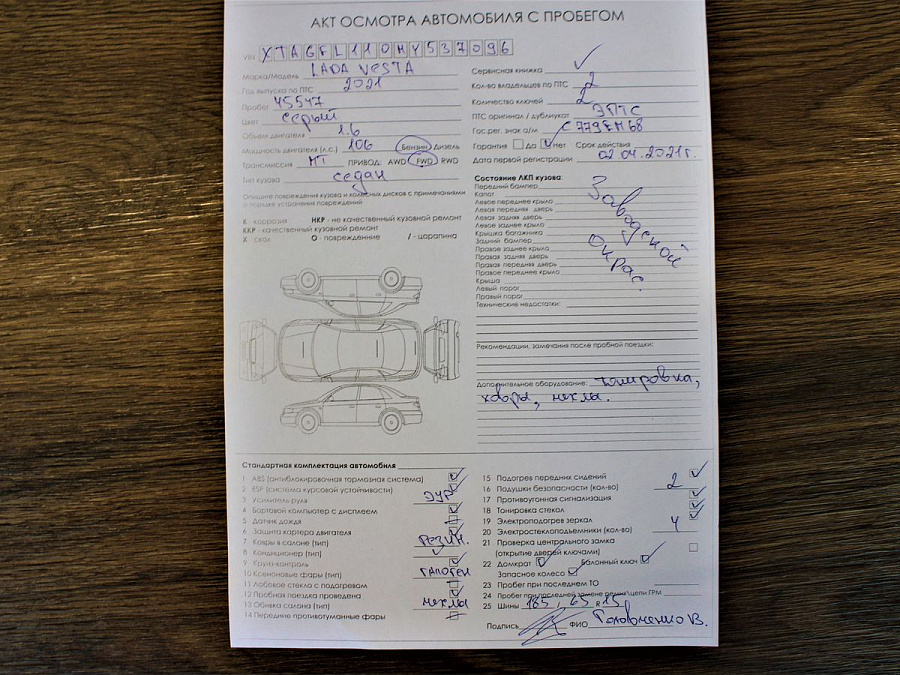 АКТ ОСМОТРА АВТОМОБИЛЯ С ПРОБЕГОМ
VIN XTAGFL110MY537096
Марка/Модель LADA VESTA
Год выпуска по ПТС 2021
Пробег 45547
Цвет серый
Объем двигателя 1.6
Мощность двигателя (л.с.) 106 Бензин Дизель
Трансмиссия МТ ПРИВОД: AWD FWD RWD
Тип кузова седан
Опишите повреждения кузова и колесных дисков с примечаниями
о порядке устранения повреждений
К - коррозия НКР - не качественный кузовной ремонт
ККР - качественный кузовной ремонт
Х - скол О - повреждение / - царапина
Сервисная книжка
Кол-во владельцев по ПТС 2
Количество ключей 2
ПТС оригинал / дубликат ЭПТС
Гос. рег. знак а/м С779ЕМ68
Гарантия Да Нет Срок действия
Дата первой регистрации 02.04.2021г.
Состояние ЛКП кузова:
Передний бампер
Капот
Левое переднее крыло
Левая передняя дверь
Левая задняя дверь
Левое заднее крыло
Крышка багажника
Задний бампер
Правое заднее крыло
Правая задняя дверь
Правая передняя дверь
Правое переднее крыло
Крыша
Левый порог
Правый порог
Заводской
окрас.
Технические недостатки:
Рекомендации, замечания после пробной поездки:
Дополнительное оборудование: тонировка,
ковры, чехлы.
Стандартная комплектация автомобиля
1 ABS (антиблокировочная тормозная система)
2 ESP (система курсовой устойчивости)
3 Усилитель руля ЭУР
4 Бортовой компьютер с дисплеем
5 Датчик дождя
6 Защита картера двигателя
7 Ковры в салоне (тип) Резин.
8 Кондиционер (тип)
9 Круиз-контроль
10 Ксеноновые фары (тип) галоген
11 Лобовое стекло с подогревам
12 Пробная поездка проведена
13 Обивка салона (тип) чехлы
14 Передние противотуманные фары
15 Подогрев передних сидений
16 Подушки безопасности (кол-во) 2
17 Противоугонная сигнализация
18 Тонировка стекол
19 Электроподогрев зеркал
20 Электростеклоподъемники (кол-во) 4
21 Проверка центрального замка
(открытие дверей ключами)
22 Домкрат Балонный ключ
Запасное колесо
23 Пробег при последнем ТО
24 Пробег при последней замене ремня/цепи ГРМ
25 Шины 185 / 65 R 15
Подпись ФИО Головченко В.